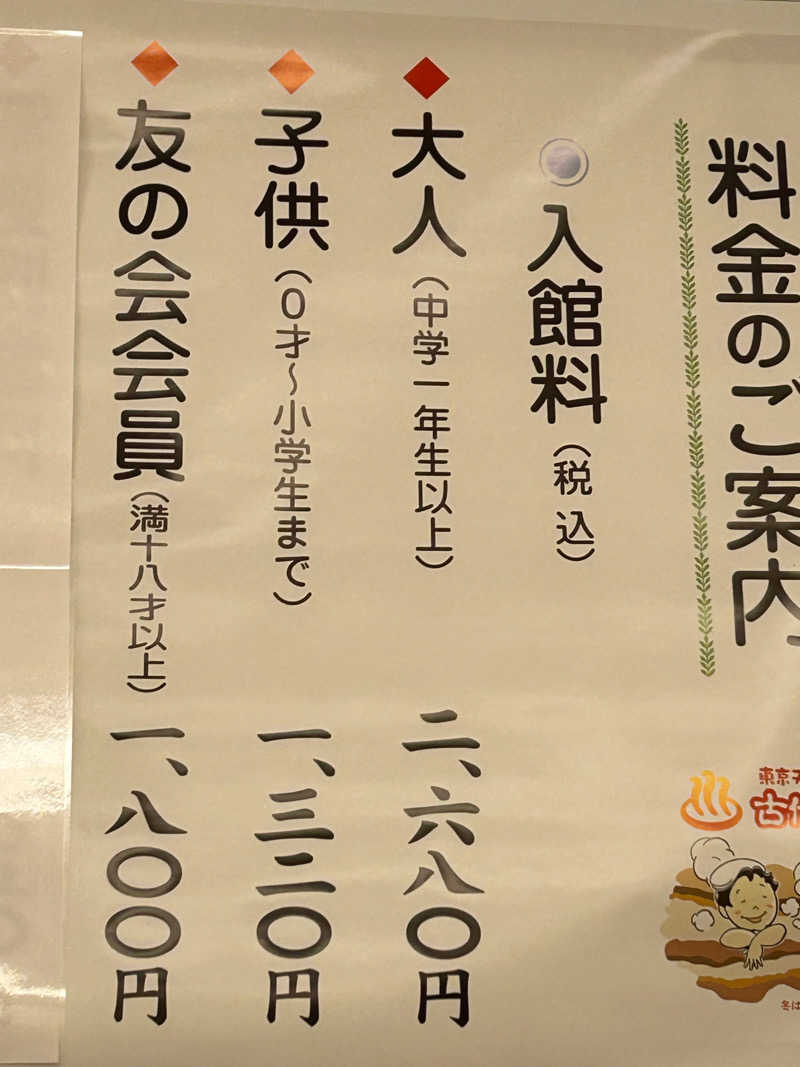 料金のご案内
入館料（税込）
大人（中学一年生以上） 二、六八〇円
子供（0才～小学生まで） 一、三二〇円
友の会会員（満十八才以上） 一、八〇〇円
東京天
古
冬は